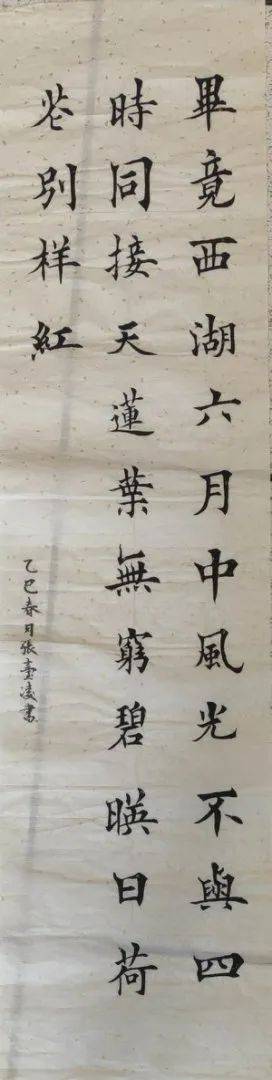 畢竟西湖六月中風光不與四
時同接天蓮葉無窮碧暎日荷
花別样紅
乙巳春月張臺凌書